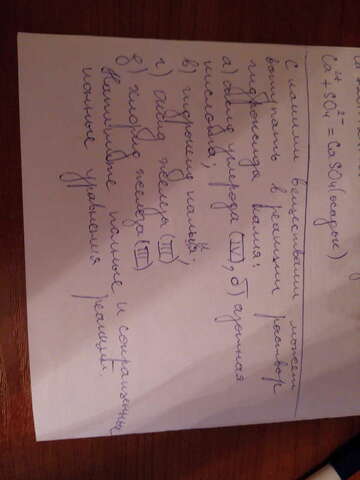 Ca²⁺ + SO₄²⁻ = CaSO₄ (осадок)
С какими веществами может
вступать в реакции раствор
гидроксида калия:
а) оксид углерода (IV); б) азотная
кислота;
в) гидроксид кальция;
г) оксид железа (III)
д) хлорид железа (III)
Напишите полные и сокращенные
ионные уравнения реакций.